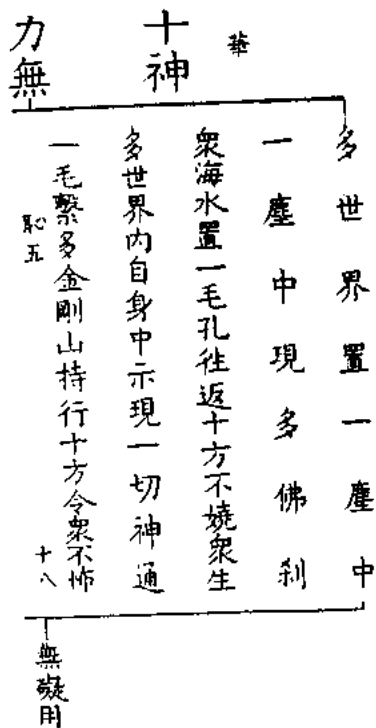 華
十神
力無
多世界置一塵中
一塵中現多佛刹
衆海水置一毛孔徃返十方不嬈衆生
多世界内自身中示現一切神通
一毛繫多金剛山持行十方令衆不怖
恥五
十八
無礙用